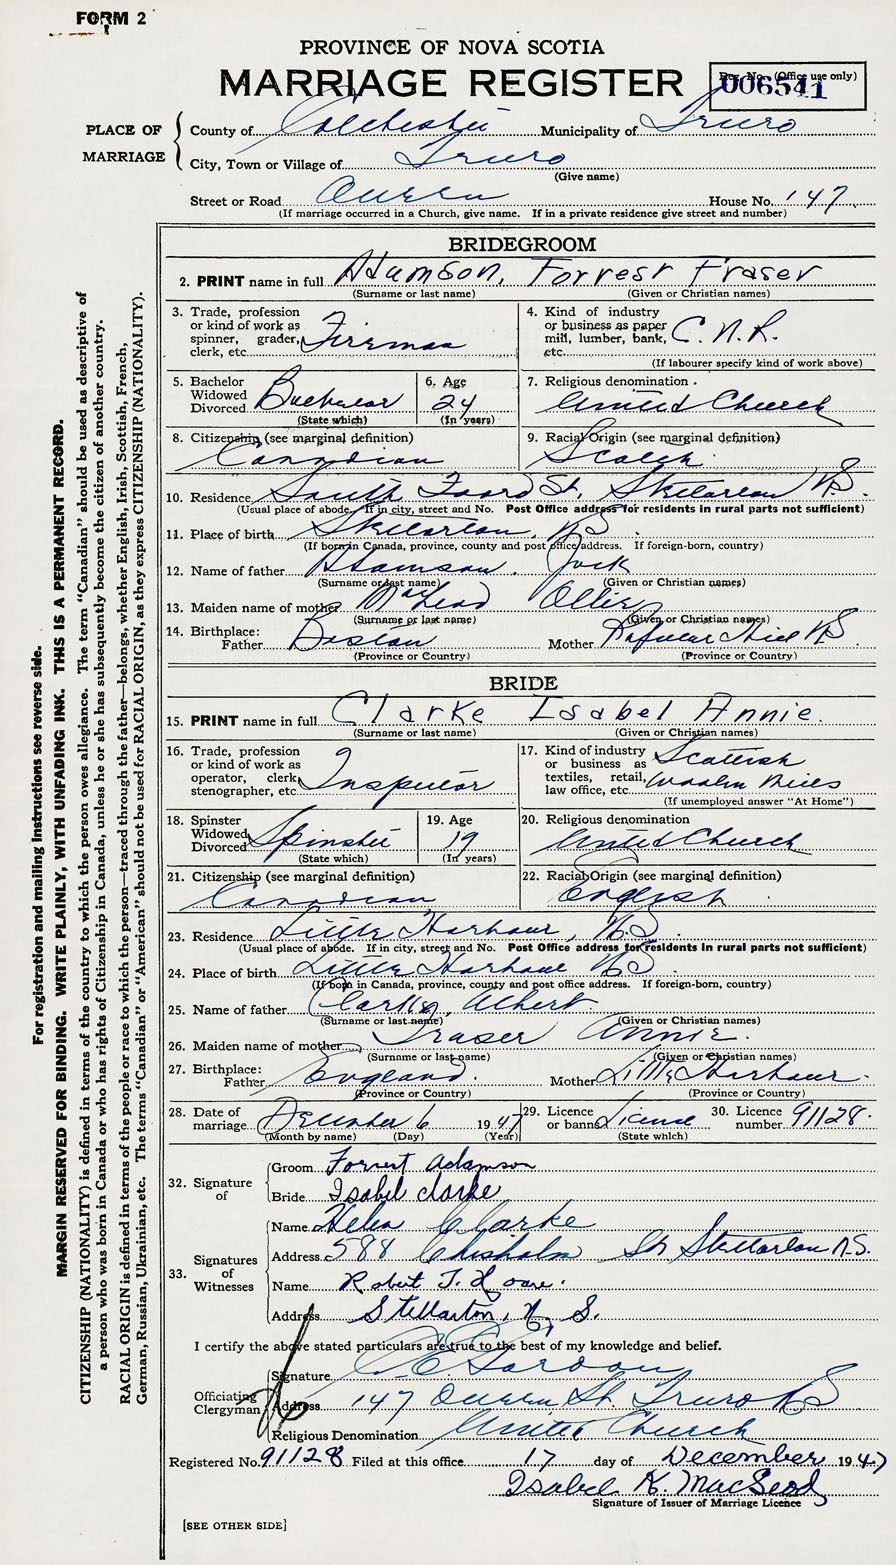 FORM 2
PROVINCE OF NOVA SCOTIA
MARRIAGE REGISTER
Reg. No. (Office use only)
006541
PLACE OF MARRIAGE
County of Colchester Municipality of Truro
City, Town or Village of Truro
(Give name)
Street or Road Queen House No. 147
(If marriage occurred in a Church, give name. If in a private residence give street and number)
BRIDEGROOM
2. PRINT name in full Adamson, Forrest Fraser
(Surname or last name) (Given or Christian names)
3. Trade, profession or kind of work as spinner, grader, clerk, etc. Fireman
4. Kind of industry or business as paper mill, lumber, bank, etc. C.N.R.
(If labourer specify kind of work above)
5. Bachelor Widowed Divorced Bachelor
(State which)
6. Age 24
(In years)
7. Religious denomination United Church
8. Citizenship (see marginal definition) Canadian
9. Racial Origin (see marginal definition) Scotch
10. Residence South Foord St. Stellarton N.S.
(Usual place of abode. If in city, street and No. Post Office address for residents in rural parts not sufficient)
11. Place of birth Stellarton, N.S.
(If born in Canada, province, county and post office address. If foreign-born, country)
12. Name of father Adamson Jock
(Surname or last name) (Given or Christian names)
13. Maiden name of mother MacLeod Ollie
(Surname or last name) (Given or Christian names)
14. Birthplace: Father Boston Mother Hill N.S.
(Province or Country) (Province or Country)
BRIDE
15. PRINT name in full Clarke Isabel Annie.
(Surname or last name) (Given or Christian names)
16. Trade, profession or kind of work as operator, clerk, stenographer, etc. Inspector
17. Kind of industry or business as textiles, retail, law office, etc. Scottish Woolen Mills
(If unemployed answer "At Home")
18. Spinster Widowed Divorced Spinster
(State which)
19. Age 19
(In years)
20. Religious denomination United Church
21. Citizenship (see marginal definition) Canadian
22. Racial Origin (see marginal definition) English
23. Residence Little Harbour, N.S.
(Usual place of abode. If in city, street and No. Post Office address for residents in rural parts not sufficient)
24. Place of birth Little Harbour N.S.
(If born in Canada, province, county and post office address. If foreign-born, country)
25. Name of father Clarke, Albert
(Surname or last name) (Given or Christian names)
26. Maiden name of mother Fraser Annie.
(Surname or last name) (Given or Christian names)
27. Birthplace: Father England. Mother Little Harbour.
(Province or Country) (Province or Country)
28. Date of marriage December 6 1947
(Month by name) (Day) (Year)
29. Licence or banns License
(State which)
30. Licence number 91128.
32. Signature of
Groom Forrest Adamson
Bride Isabel Clarke
33. Signatures of Witnesses
Name Helen Clarke
Address 588 Chisholm St Stellarton N.S.
Name Robert T. Hoare.
Address Stellarton, N.S.
I certify the above stated particulars are true to the best of my knowledge and belief.
Officiating Clergyman
Signature Gordon
Address 147 Queen St. Truro N.S.
Religious Denomination United Church
Registered No. 91128 Filed at this office 17 day of December 1947
Isabel K. MacLeod
Signature of Issuer of Marriage Licence
[SEE OTHER SIDE]
For registration and mailing instructions see reverse side.
MARGIN RESERVED FOR BINDING. WRITE PLAINLY, WITH UNFADING INK. THIS IS A PERMANENT RECORD.
CITIZENSHIP (NATIONALITY) is defined in terms of the country to which the person owes allegiance. The term "Canadian" should be used as descriptive of
a person who was born in Canada or who has rights of Citizenship in Canada, unless he or she has subsequently become the citizen of another country.
RACIAL ORIGIN is defined in terms of the people or race to which the person—traced through the father—belongs, whether English, Irish, Scottish, French,
German, Russian, Ukrainian, etc. The terms "Canadian" or "American" should not be used for RACIAL ORIGIN, as they express CITIZENSHIP (NATIONALITY).